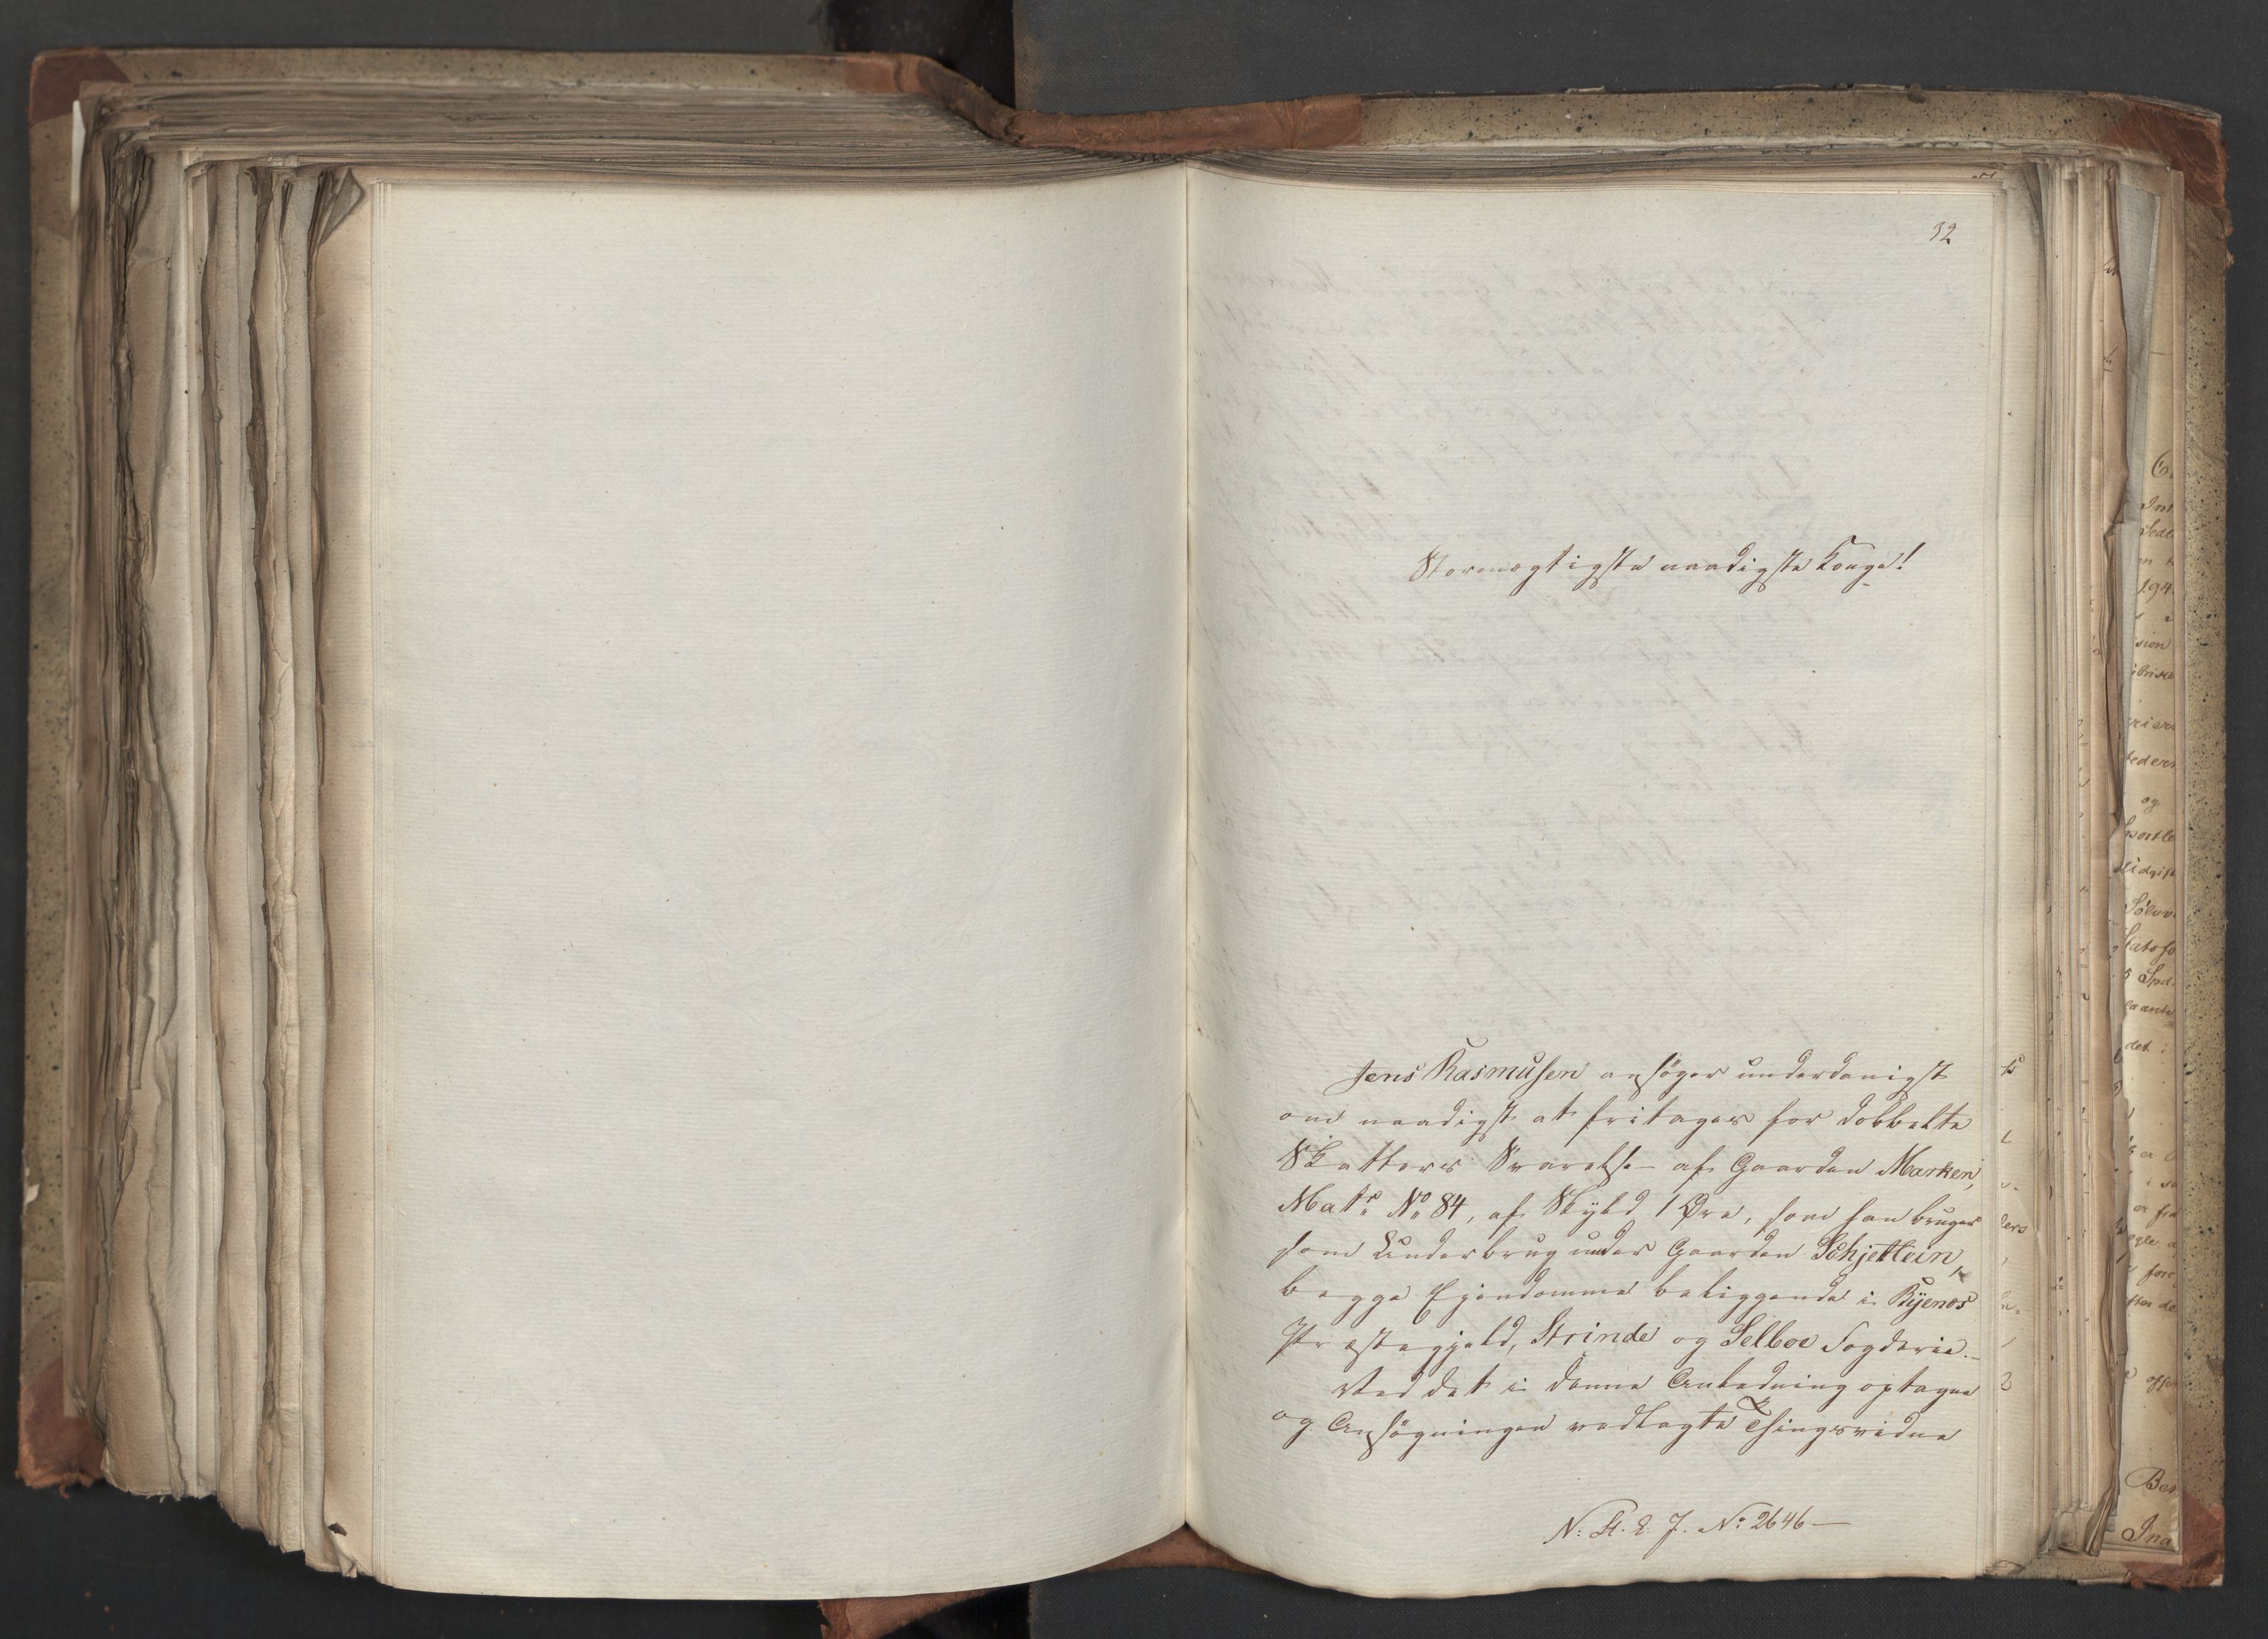 32
Stormægtigste naadigste Konge!
Jens Rasmusen ansøger underdanigst
om naadigst at fritages for dobbelte
Skatters Svarelse af Gaarden Marken,
Matr. No 84, af Skyld 1 Øre, som han bruger
som Underbrug under Gaarden Schjetlein,
begge Ejendomme beliggende i Byenes
Præstegjeld, Strinde og Selboe Fogderie.
Ved det i denne Anledning optagne
og Ansøgningen vedlagte Thingsvidne
N: R. E. J. No 2646